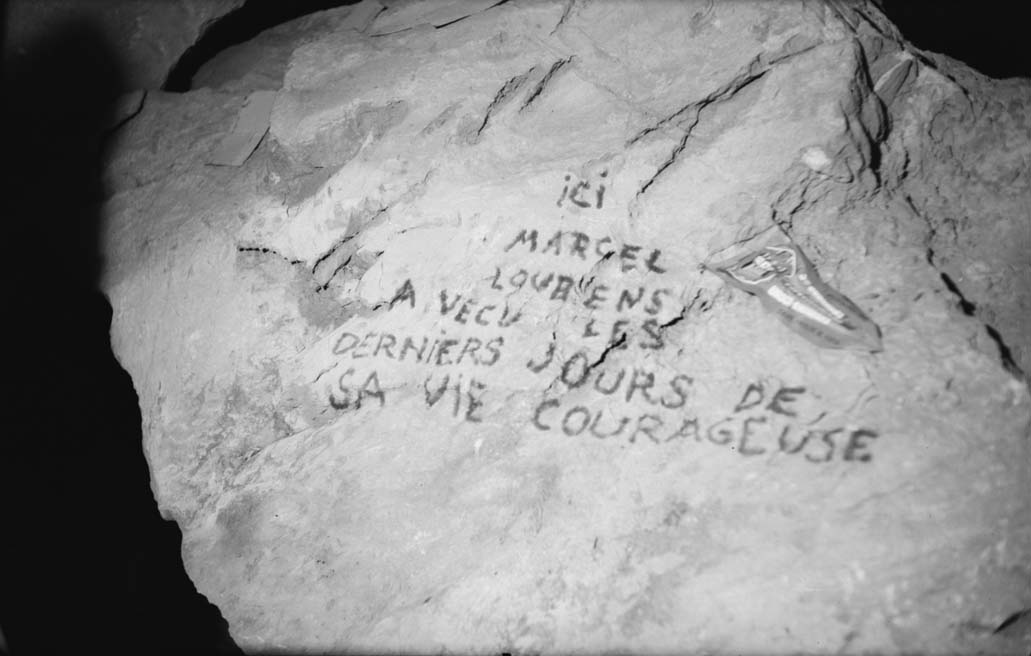 ici
MARCEL
LOUBENS
A VECU LES
DERNiERS JOURS DE
SA ViE COURAGEUSE